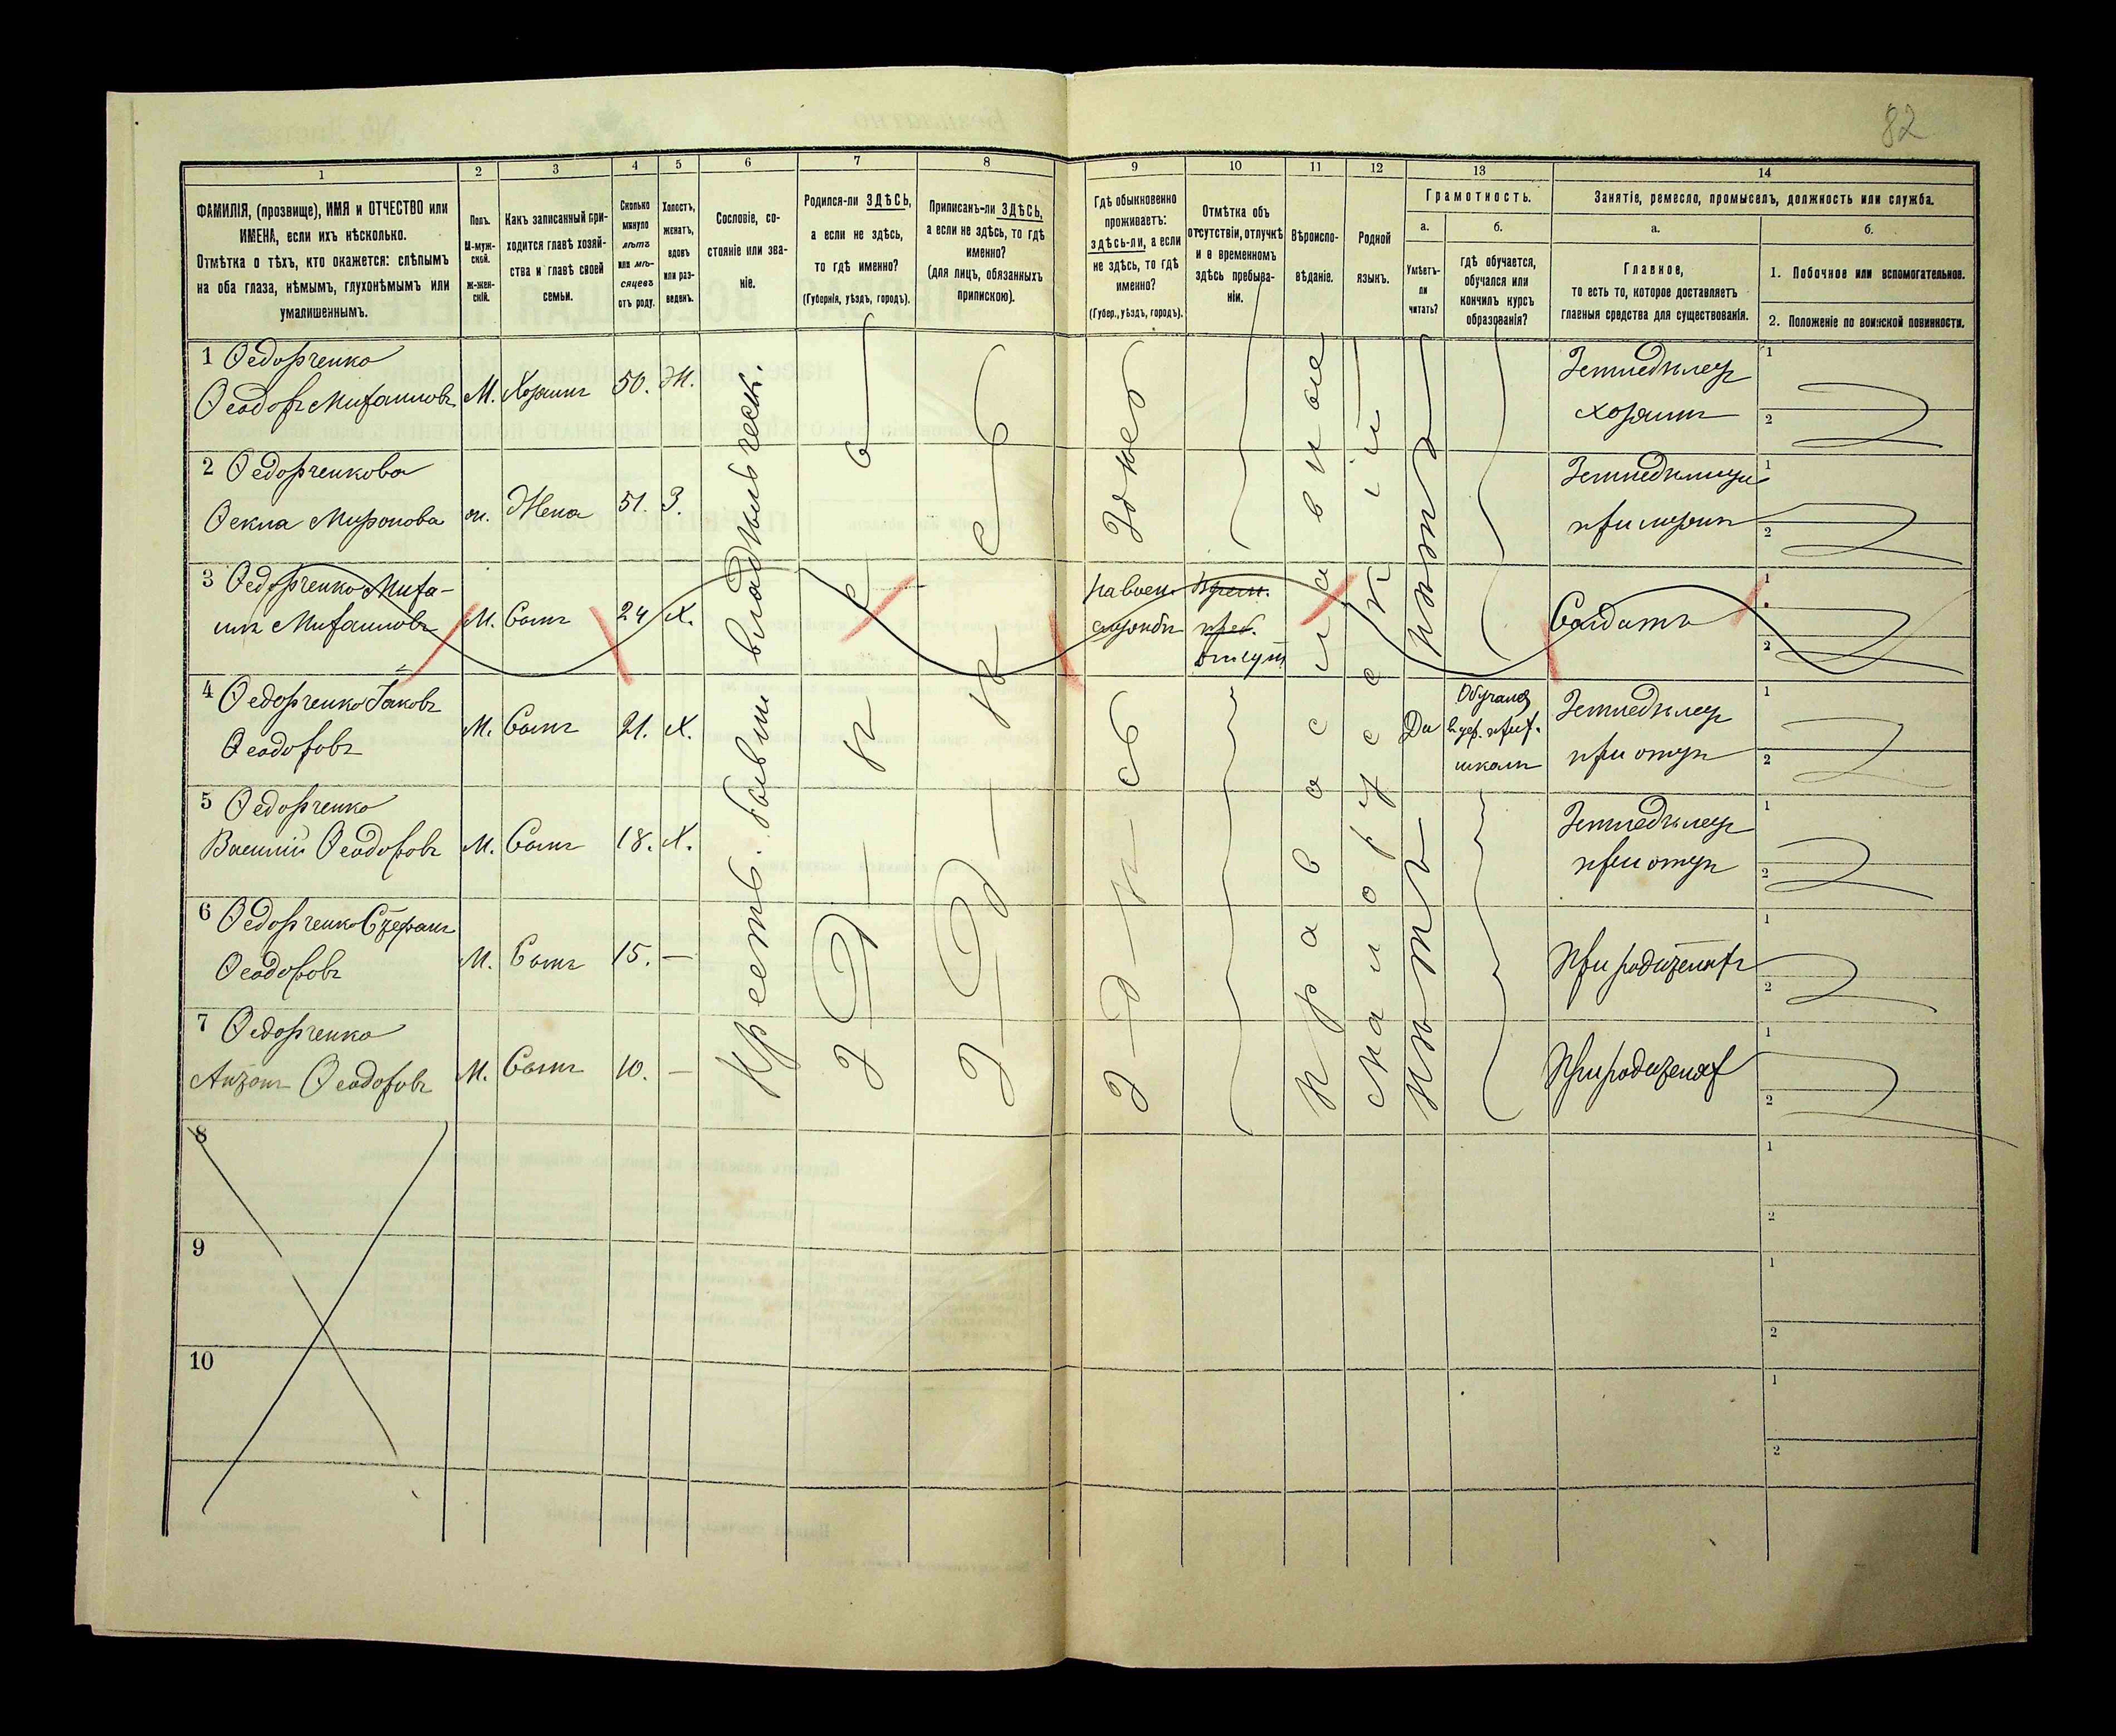 82
1
2
3
4
5
6
7
8
9
10
11
12
13
14
ФАМИЛІЯ, (прозвище), ИМЯ и ОТЧЕСТВО или
ИМЕНА, если ихъ нѣсколько.
Отмѣтка о тѣхъ, кто окажется: слѣпымъ
на оба глаза, нѣмымъ, глухонѣмымъ или
умалишеннымъ.
Полъ.
М-муж-
ской.
Ж-жен-
скій.
Какъ записанный при-
ходится главѣ хозяй-
ства и главѣ своей
семьи.
Сколько
минуло
лѣтъ
или мѣ-
сяцевъ
отъ роду.
Холостъ,
женатъ,
вдовъ
или раз-
веденъ.
Сословіе, со-
стояніе или зва-
ніе.
Родился-ли ЗДѢСЬ,
а если не здѣсь,
то гдѣ именно?
(Губернія, уѣздъ, городъ).
Приписанъ-ли ЗДѢСЬ,
а если не здѣсь, то гдѣ
именно?
(для лицъ, обязанныхъ
припискою).
Гдѣ обыкновенно
проживаетъ:
здѣсь-ли, а если
не здѣсь, то гдѣ
именно?
(Губер., уѣздъ, городъ).
Отмѣтка объ
отсутствіи, отлучкѣ
и о временномъ
здѣсь пребыва-
ніи.
Вѣроиспо-
вѣданіе.
Родной
языкъ.
Грамотность.
а.
Умѣетъ-
ли
читать?
б.
гдѣ обучается,
обучался или
кончилъ курсъ
образованія?
Занятіе, ремесло, промыселъ, должность или служба.
а.
Главное,
то есть то, которое доставляетъ
главныя средства для существованія.
б.
1. Побочное или вспомогательное.
2. Положеніе по воинской повинности.
Крестьь. бывш владѣльческ.
Здѣсь
Здѣсь
Здѣсь
Православное
Малорусскій
нѣтъ
1 Ѳедорченко
Ѳеодоръ Михаиловъ М. Хозяинъ 50. Ж.
Земледѣлецъ
хозяинъ
1
2
2 Ѳедорченкова
Ѳекла Миронова ж. Жена 51. З.
Тоже
Земледѣлица
при мужѣ
1
2
3 Ѳедорченко Миха-
илъ Михаиловъ М. Сынъ 24 Х.
на воен.
службѣ
Врем.
преб.
отсут
Солдатъ
1
2
4 Ѳедорченко Іаковъ
Ѳеодоровъ М. Сынъ 21. Х.
Да
Обучался
в цер. прих.
школѣ
Земледѣлецъ
при отцѣ
1
2
5 Ѳедорченко
Василій Ѳеодоровъ М. Сынъ 18. Х.
нѣтъ
Земледѣлецъ
при отцѣ
1
2
6 Ѳедорченко Стефанъ
Ѳеодоровъ М. Сынъ 15. —
При родителяхъ
1
2
7 Ѳедорченко
Антонъ Ѳеодоровъ М. Сынъ 10. —
При родителях
1
2
8
1
2
9
1
2
10
1
2